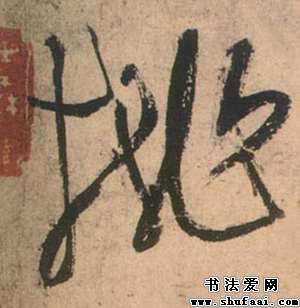 挑
书法爱网
www.shufaai.com